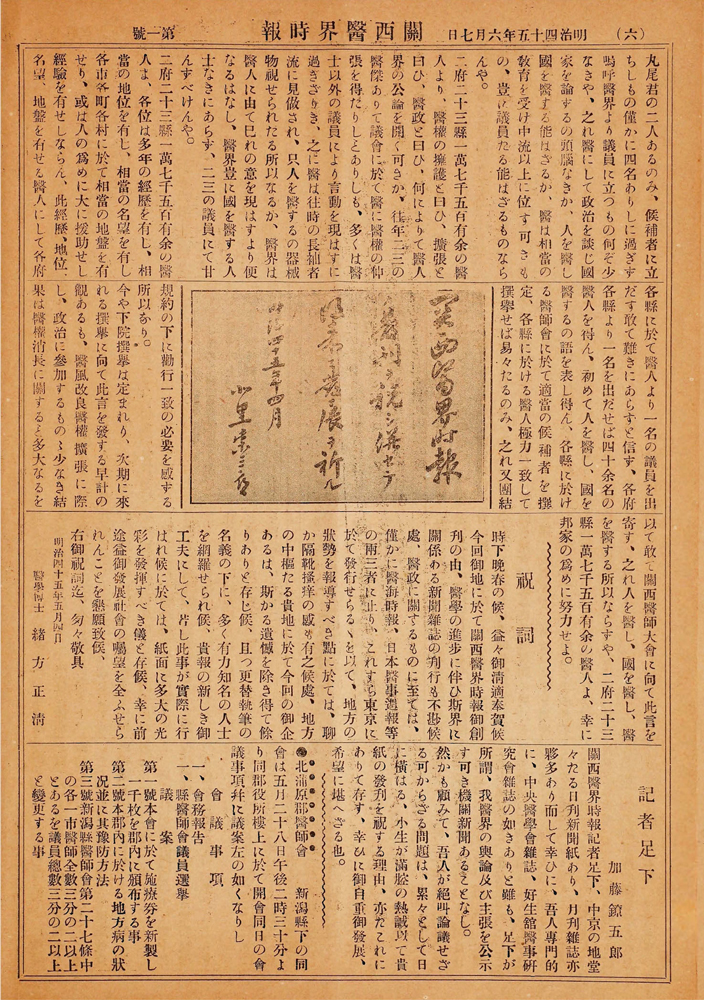 第一號
關西醫界時報
明治四十五年六月七日
(六)
丸尾君の二人あるのみ、候補者に立
ちしもの僅かに四名ありしに過ぎす
嗚呼醫界より議員に立つもの何ぞ少
なきや、之れ醫にして政治を談じ國
家を論するの頭腦なきか、人を醫し
國を醫する能はざるか、醫は相當の
敎育を受け中流以上に位す可きも
の、豈に議員たる能はざるものなら
んや。
二府二十三縣一萬七千五百有余の醫
人より、醫權の擁護と曰ひ、擴張と
曰ひ、醫政と曰ひ、何によりて醫人
界の公論を開く可きか、往年二三の
醫傑ありて議會に於て醫に醫權の伸
張を得たりしとありしも、多くは醫
士以外の議員により言動を現はすに
過ぎざりき、之に醫は往時の長袖者
流に見做され、只人を醫するの器械
物視せられたる所以なるか、醫界は
醫人に由て已れの意を現はすより便
なるはなし、醫界豈に國を醫する人
士なきにあらす、二三の議員にて甘
んすべけんや。
二府二十三縣一萬七千五百有余の醫
人よ、各位は多年の經歷を有し、相
當の地位を有し、相當の名望を有し
各市各町各村に於て相當の地盤を有
せり、或は人の爲めに大に援助せし
經驗を有せしならん、此經歷、地位、
名望、地盤を有せる醫人にして各府
各縣に於て醫人より一名の議員を出
だす敢て難きにあらすと信す、各府
各縣より一名を出だせば四十余名の
醫人を得ん、初めて人を醫し、國を
醫するの語を表し得ん、各縣に於け
る醫師會に於て適當の候補者を撰
定、各縣に於ける醫人極力一致して
撰擧せば易々たるのみ、之れ又團結
關西醫界時報
發刊ヲ祝シ併セテ
明治四十五年四月
規約の下に勸行一致の必要を感する
所以なり。
今や下院撰擧は定まれり、次期に來
れる撰擧に向て此言を發する早計の
觀あるも、醫風改良醫權擴張に際
し、政治に參加するものゝ少なき結
果は醫權消長に關すると多大なるを
以て敢て關西醫師大會に向て此言を
寄す、之れ人を醫し、國を醫し、醫
を醫する所以ならすや、二府二十三
縣一萬七千五百有余の醫人よ、幸に
邦家の爲めに努力せよ。
祝詞
時下晩春の候、益々御淸適奉賀候
今回御地に於て關西醫界時報御創
刊の由、醫學の進步に伴ひ斯界に
關係ある新聞雜誌の刋行も不尠候
處、醫政に關するものに至ては、
僅かに醫海時報、日本醫事週報等
の兩三者に止り、これすら東京に
於て發行せらるゝを以て、地方の
狀勢を報導すべき點に於ては、聊
か隔靴搔痒の感も有之候處、地方
の中樞たる貴地に於て今回の御企
あるは、斯かる遺憾を除き得て餘
ありと存じ候、且つ更替執筆の
名義の下に、多く有力知名の人士
を網羅せられ候、貴報の新しき御
工夫にして、若し此事が實際に行
はれ候に於ては、紙面に多大の光
彩を發揮すべき儀と存候、幸に前
途益御發展社會の囑望を全ふせら
れんことを懇願致候、
右御祝詞迄、匆々敬具
明治四十五年五月四日
醫學博士 緖方正淸
記者足下
加藤鐐五郎
關西醫界時報記者足下、中京の地堂
々たる日刊新聞紙あり、月刊雜誌亦
夥多あり而して幸ひに、吾人專門的
に、中央醫學會雜誌、好生舘醫事硏
究會雜誌の如きありと雖も、足下が
所謂、我醫界の輿論及び主張を公示
す可き機關新聞あることなし。
然かも顧みて、吾人が絕叫論議せざ
る可からざる問題は、累々として日
に橫はる、小生が滿腔の熱誠以て貴
紙の發刋を祝する理由、亦たこれに
ありて存す、幸ひに御自重御發展、
希望に堪へざる也。
●北蒲原郡醫師會 新潟縣下の同
會は五月二十八日午後二時三十分よ
り同郡役所樓上に於て開會同日の會
議事項幷に議案左の如くなりし
會議事項
一、會務報告
一、縣醫師會議員選擧
議案
第一號本會に於て施療券を新製し
一千枚を郡內に頒布する事
第二號本郡內に於ける地方病の狀
況並に其豫防方法
第三號新潟縣醫師會第二十七條中
の各一市醫師全數三分の二以上
とあるを議員總數三分の二以上
と變更する事